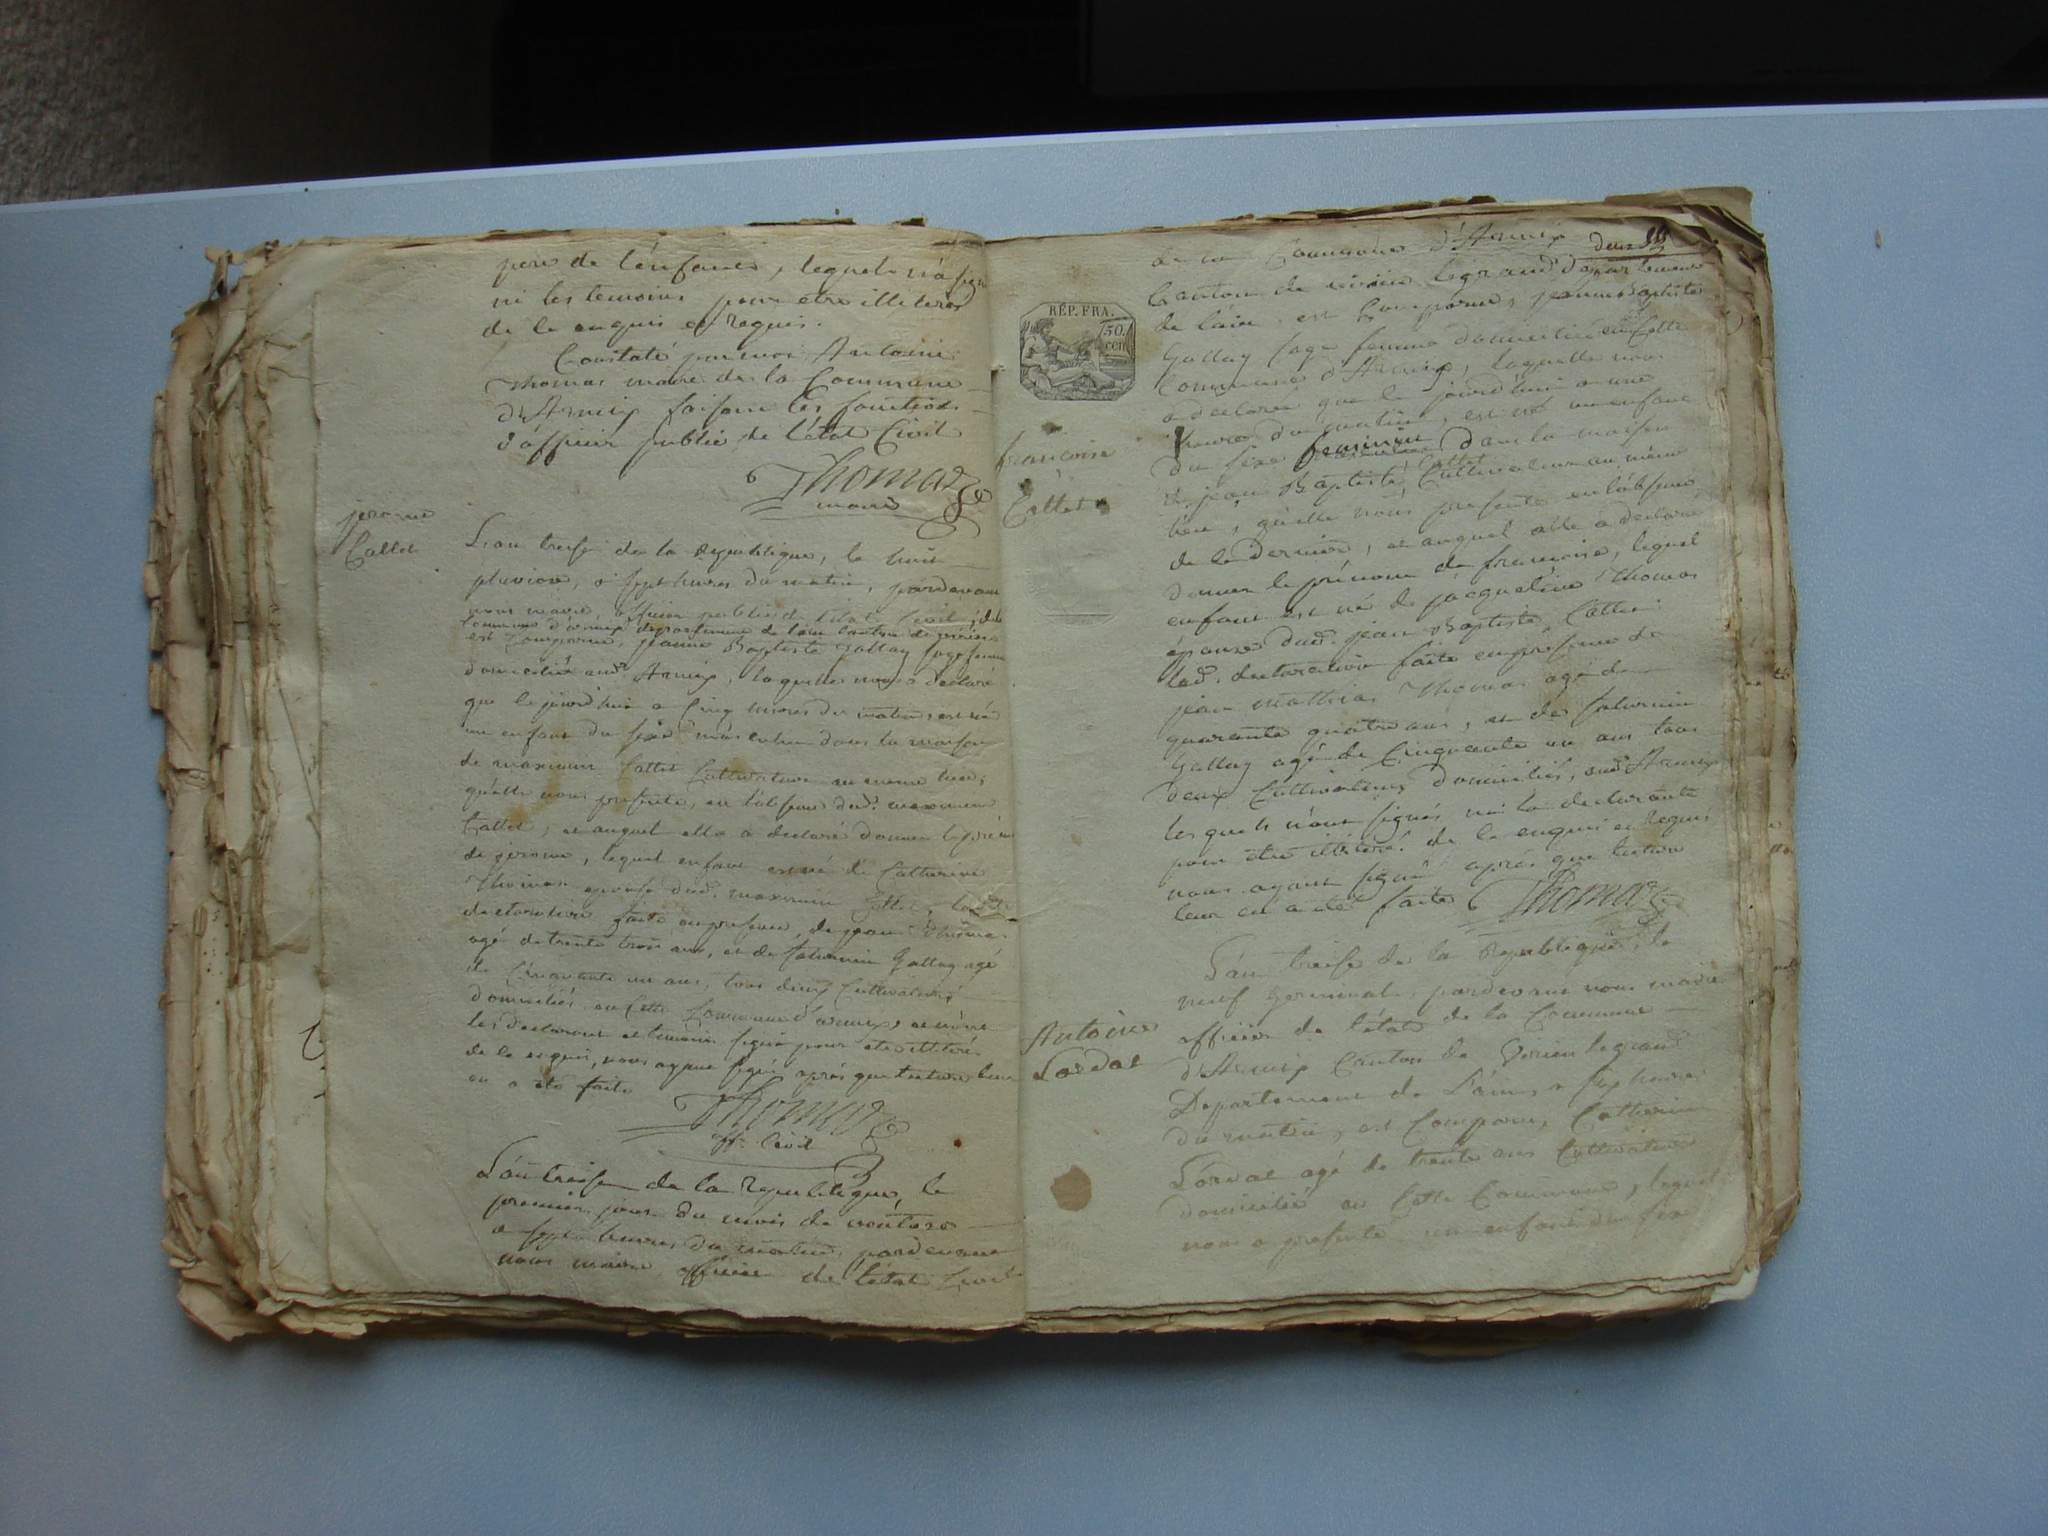 pere de l'enfant, lequel n'a signé
ni les temoins pour etre illiteres
de le enquis et requis.
Constaté par moi Antoine
Thomas maire de la Commune
d'Armix faisant les fonctions
d'officier public de l'état Civil
Thomas
maire
jerome
Callet
L'an treise de la republique, le huit
pluviose, a sept heures du matin, pardevant
nous maire officier public de l'état Civil, de la
commune d'armix departement de l'ain Canton de
est Comparue, jeanne Baptiste Gallay sage femme
domiciliée aud. Armix, laquelle nous a declaré
que le jourd'hui a Cinq heures du matin, est né
un enfant du sexe masculin dans la maison
de maximin Callet Cultivateur au meme lieu,
qu'elle nous presente, en l'absence dud. maximin
Callet, et auquel elle a declaré donner le prénom
de jerome, lequel enfant est né de Catherine
Thomas epouse dud. maximin Callet, la
declaration faite en presence, de jean Thomas
agé de trente trois ans, et de saturnin Gallay agé
de Cinquante un ans, tous deux Cultivateurs
domiciliés en Cette Commune d'armix, et n'ont
les declarant et temoins signé pour etre illiterés
de le enquis, nous ayant signé après que lecture leur
en a été faite
Thomas
off. Civil
L'an treise de la republique, le
premier jour du mois de ventose
a sept heures du matin, pardevant
nous maire officier de l'état Civil
de la Commune d'Armix
deux
Canton de virieu le grand departement
de l'ain, est Comparue, jeanne Baptiste
Gallay sage femme domiciliée en Cette
Commune d'Armix, laquelle nous
a declaré que le jourd'hui a une
heure du matin, est né un enfant
du sexe feminin dans la maison
de jean Baptiste Callet Cultivateur au même
lieu, qu'elle nous presente en l'absence
de le dernier, et auquel elle a declaré
donner le prénom de françoise, lequel
enfant est né de jacqueline Thomas
épouse dud. jean Baptiste Callet
lad. declaration faite en presence de
jean mathias Thomas agé de
quarante quatre ans, et de saturnin
Gallay agé de Cinquante un ans tous
deux Cultivateurs domiciliés, aud. Armix
lesquels n'ont signés ni la declarante
pour être illiteré de le enquis et requis
nous ayant signé après que lecture
leur en a été faite Thomas
RÉP. FRA.
50.
cen
françoise
Callet
Antoine
Lordat
L'an treise de la Republique, le
neuf Germinal, pardevant nous maire
officier de l'état de la Commune
d'Armix Canton de Virieu le grand
Departement de L'ain, a sept heures
du matin, est Comparu, Catherin
Lordat agé de trente ans Cultivateur
domicilié en Cette Commune, lequel
nous a presenté un enfant du sexe